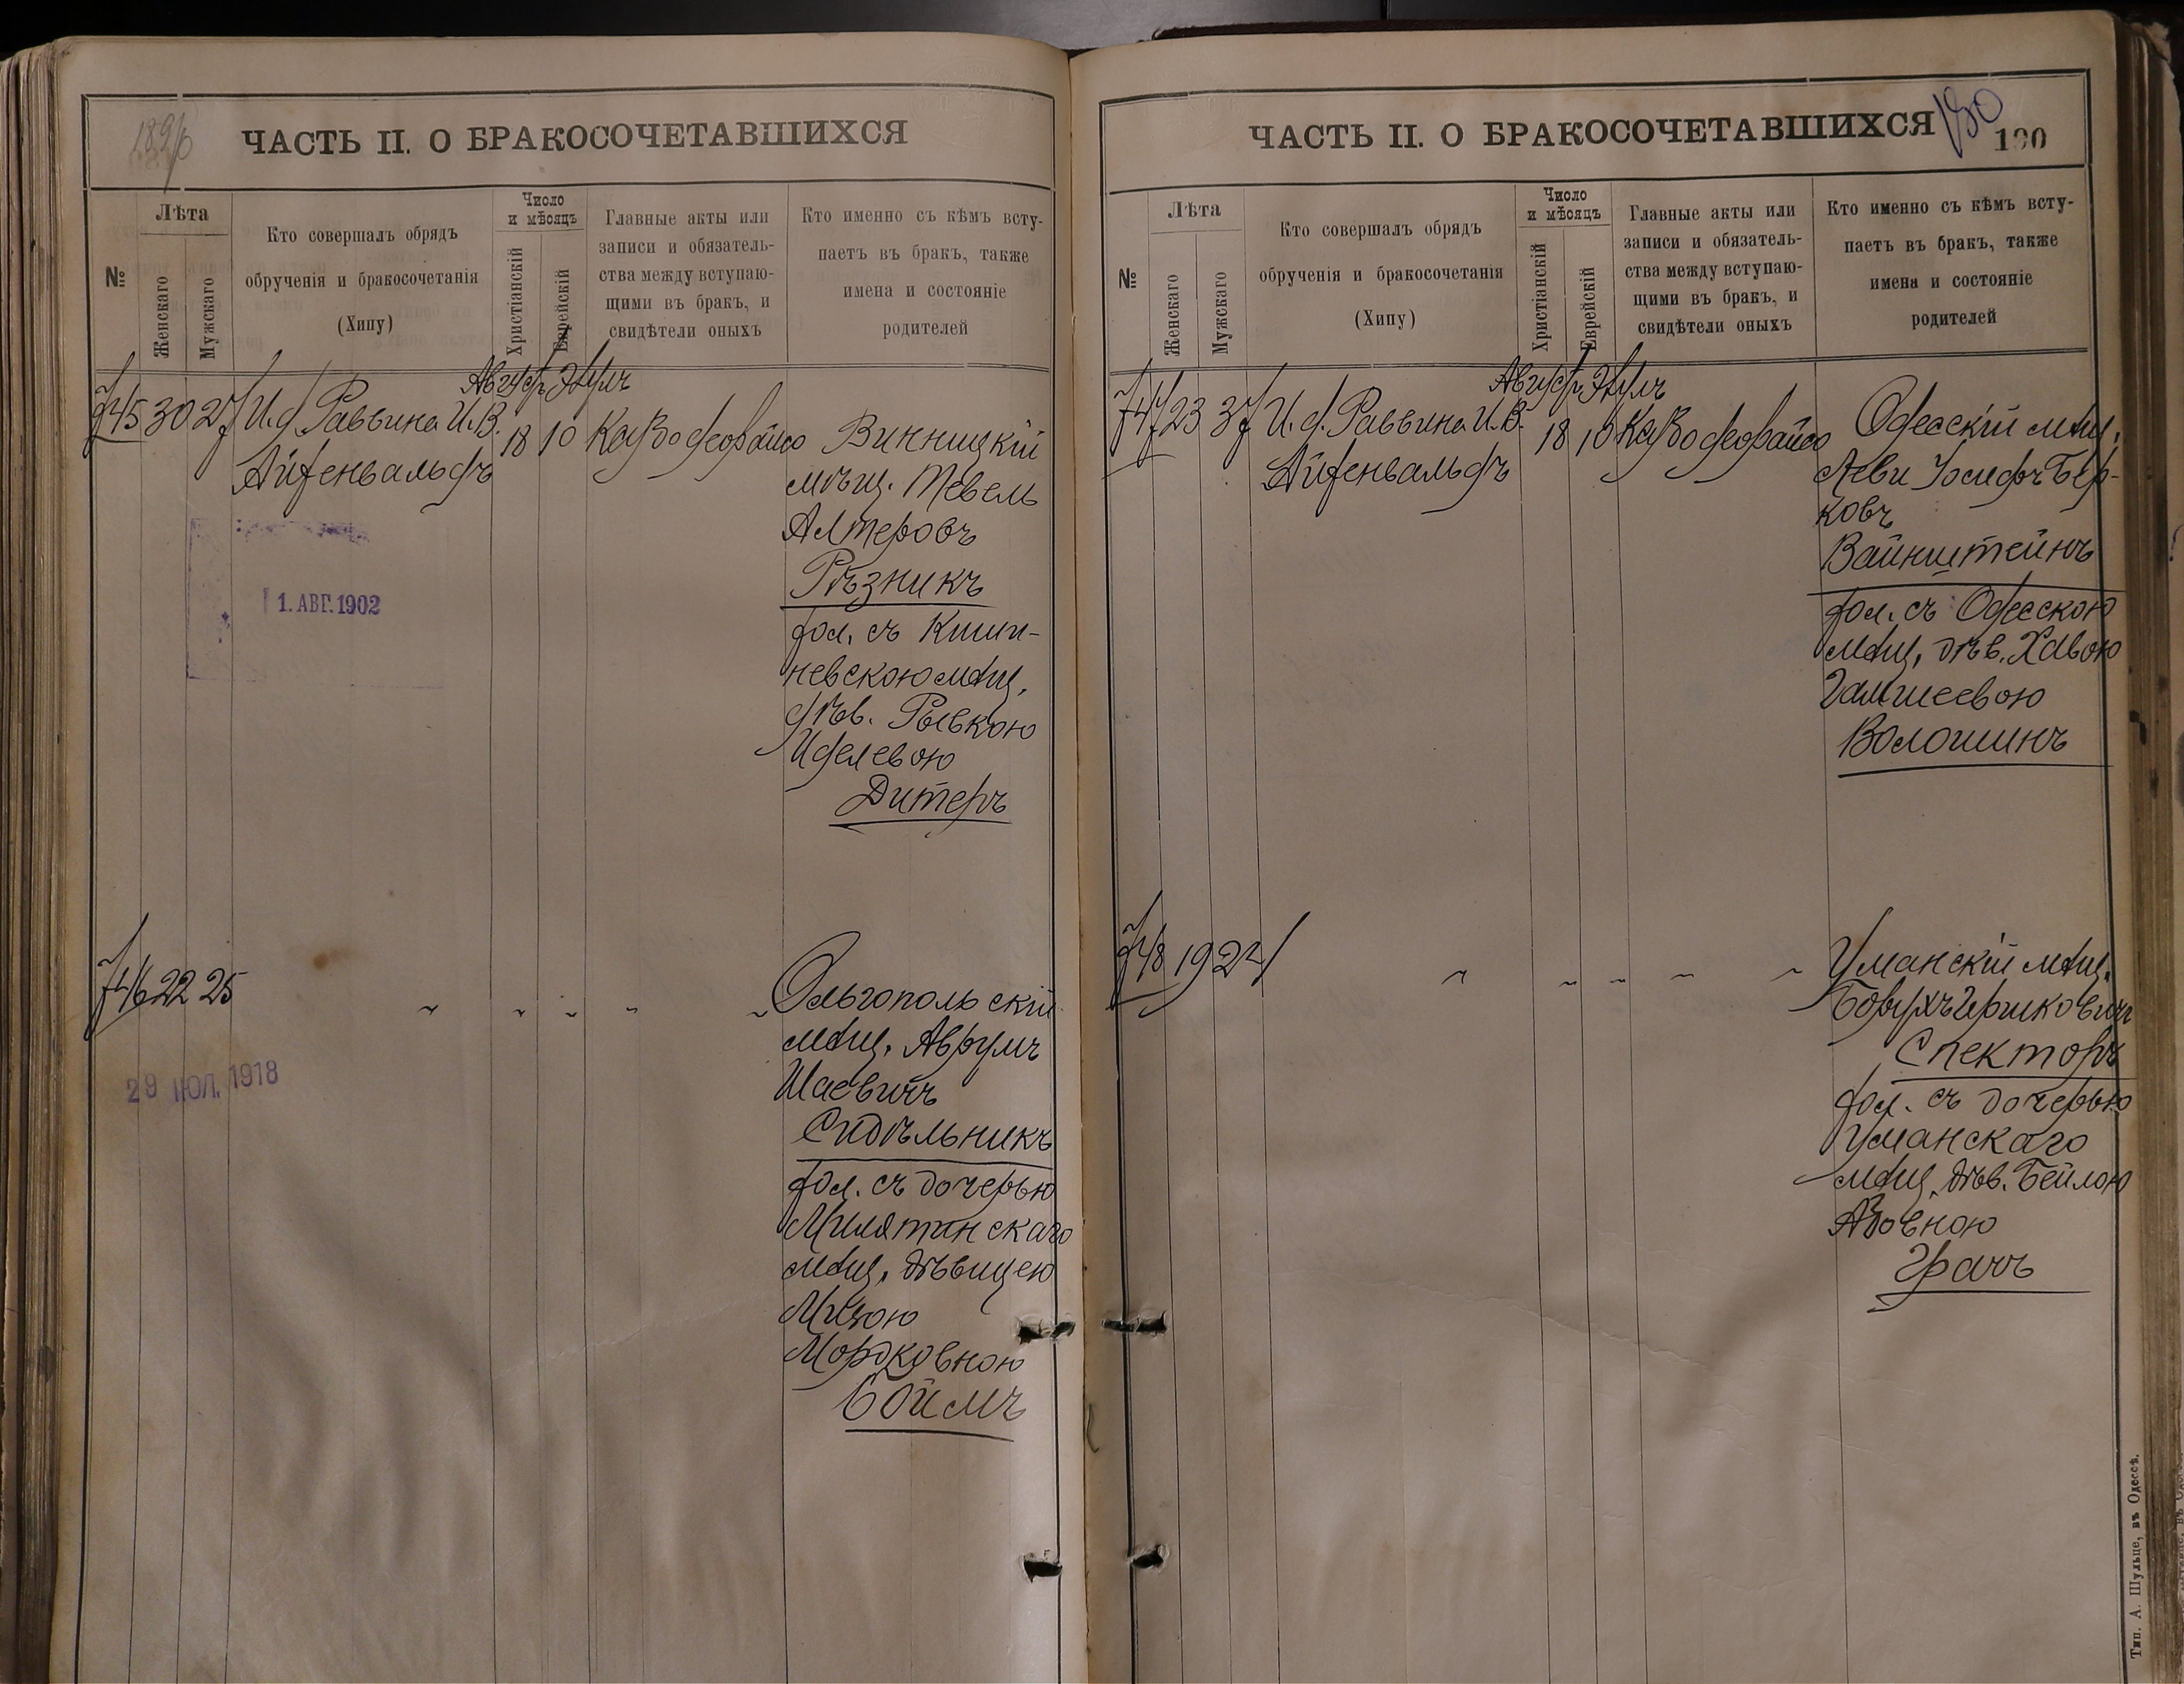 1896
ЧАСТЬ II. О БРАКОСОЧЕТАВШИХСЯ
№
Лѣта
Женскаго
Мужскаго
Кто совершалъ обрядъ
обрученія и бракосочетанія
(Хипу)
Число
и мѣсяцъ
Христіанскій
Еврейскій
Главные акты или
записи и обязатель-
ства между вступаю-
щими въ бракъ, и
свидѣтели оныхъ
Кто именно съ кѣмъ всту-
паетъ въ бракъ, также
имена и состояніе
родителей
Августъ Элулъ
745 30 27 И. д. Раввина И. В.
Айзенвальдъ
18 10
Винницкій
мѣщ. Тевель
Алтеровъ
Рѣзникъ
хол. съ Киши-
невскою мѣщ.
дѣв. Рывкою
Иделевою
Дитеръ
1. АВГ. 1902
746 22 25 " " " " "
Ольгопольскій
мѣщ. Аврумъ
Шаевичъ
Сидѣльникъ
хол. съ дочерью
Милятинскаго
мѣщ. дѣвицею
Мордковною
Боймъ
29 ІЮЛ. 1918
ЧАСТЬ II. О БРАКОСОЧЕТАВШИХСЯ
180
190
№
Лѣта
Женскаго
Мужскаго
Кто совершалъ обрядъ
обрученія и бракосочетанія
(Хипу)
Число
и мѣсяцъ
Христіанскій
Еврейскій
Главные акты или
записи и обязатель-
ства между вступаю-
щими въ бракъ, и
свидѣтели оныхъ
Кто именно съ кѣмъ всту-
паетъ въ бракъ, также
имена и состояніе
родителей
Августъ Элулъ
747 23 37 И. д. Раввина И. В.
Айзенвальдъ
18 10
Одесскій мѣщ.
Леви Іосифъ Бер-
ковъ
Вайнштейнъ
хол. съ Одесскою
мѣщ. дѣв. Хавою
Гамшеевою
Волошинъ
748 19 24 " " " " "
Уманскій мѣщ.
Борухъ Гершковичъ
Спекторъ
хол. съ дочерью
Уманскаго
мѣщ. дѣв. Бейлою
Азовною
Грачъ
Тип. А. Шульце, въ Одессѣ.